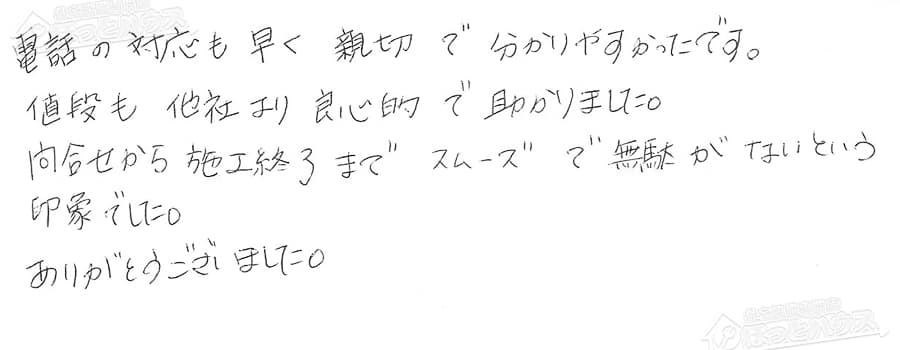 電話の対応も早く親切で分かりやすかったです。
値段も他社より良心的で助かりました。
問合せから施工終了までスムーズで無駄がないという
印象でした。
ありがとうございました。